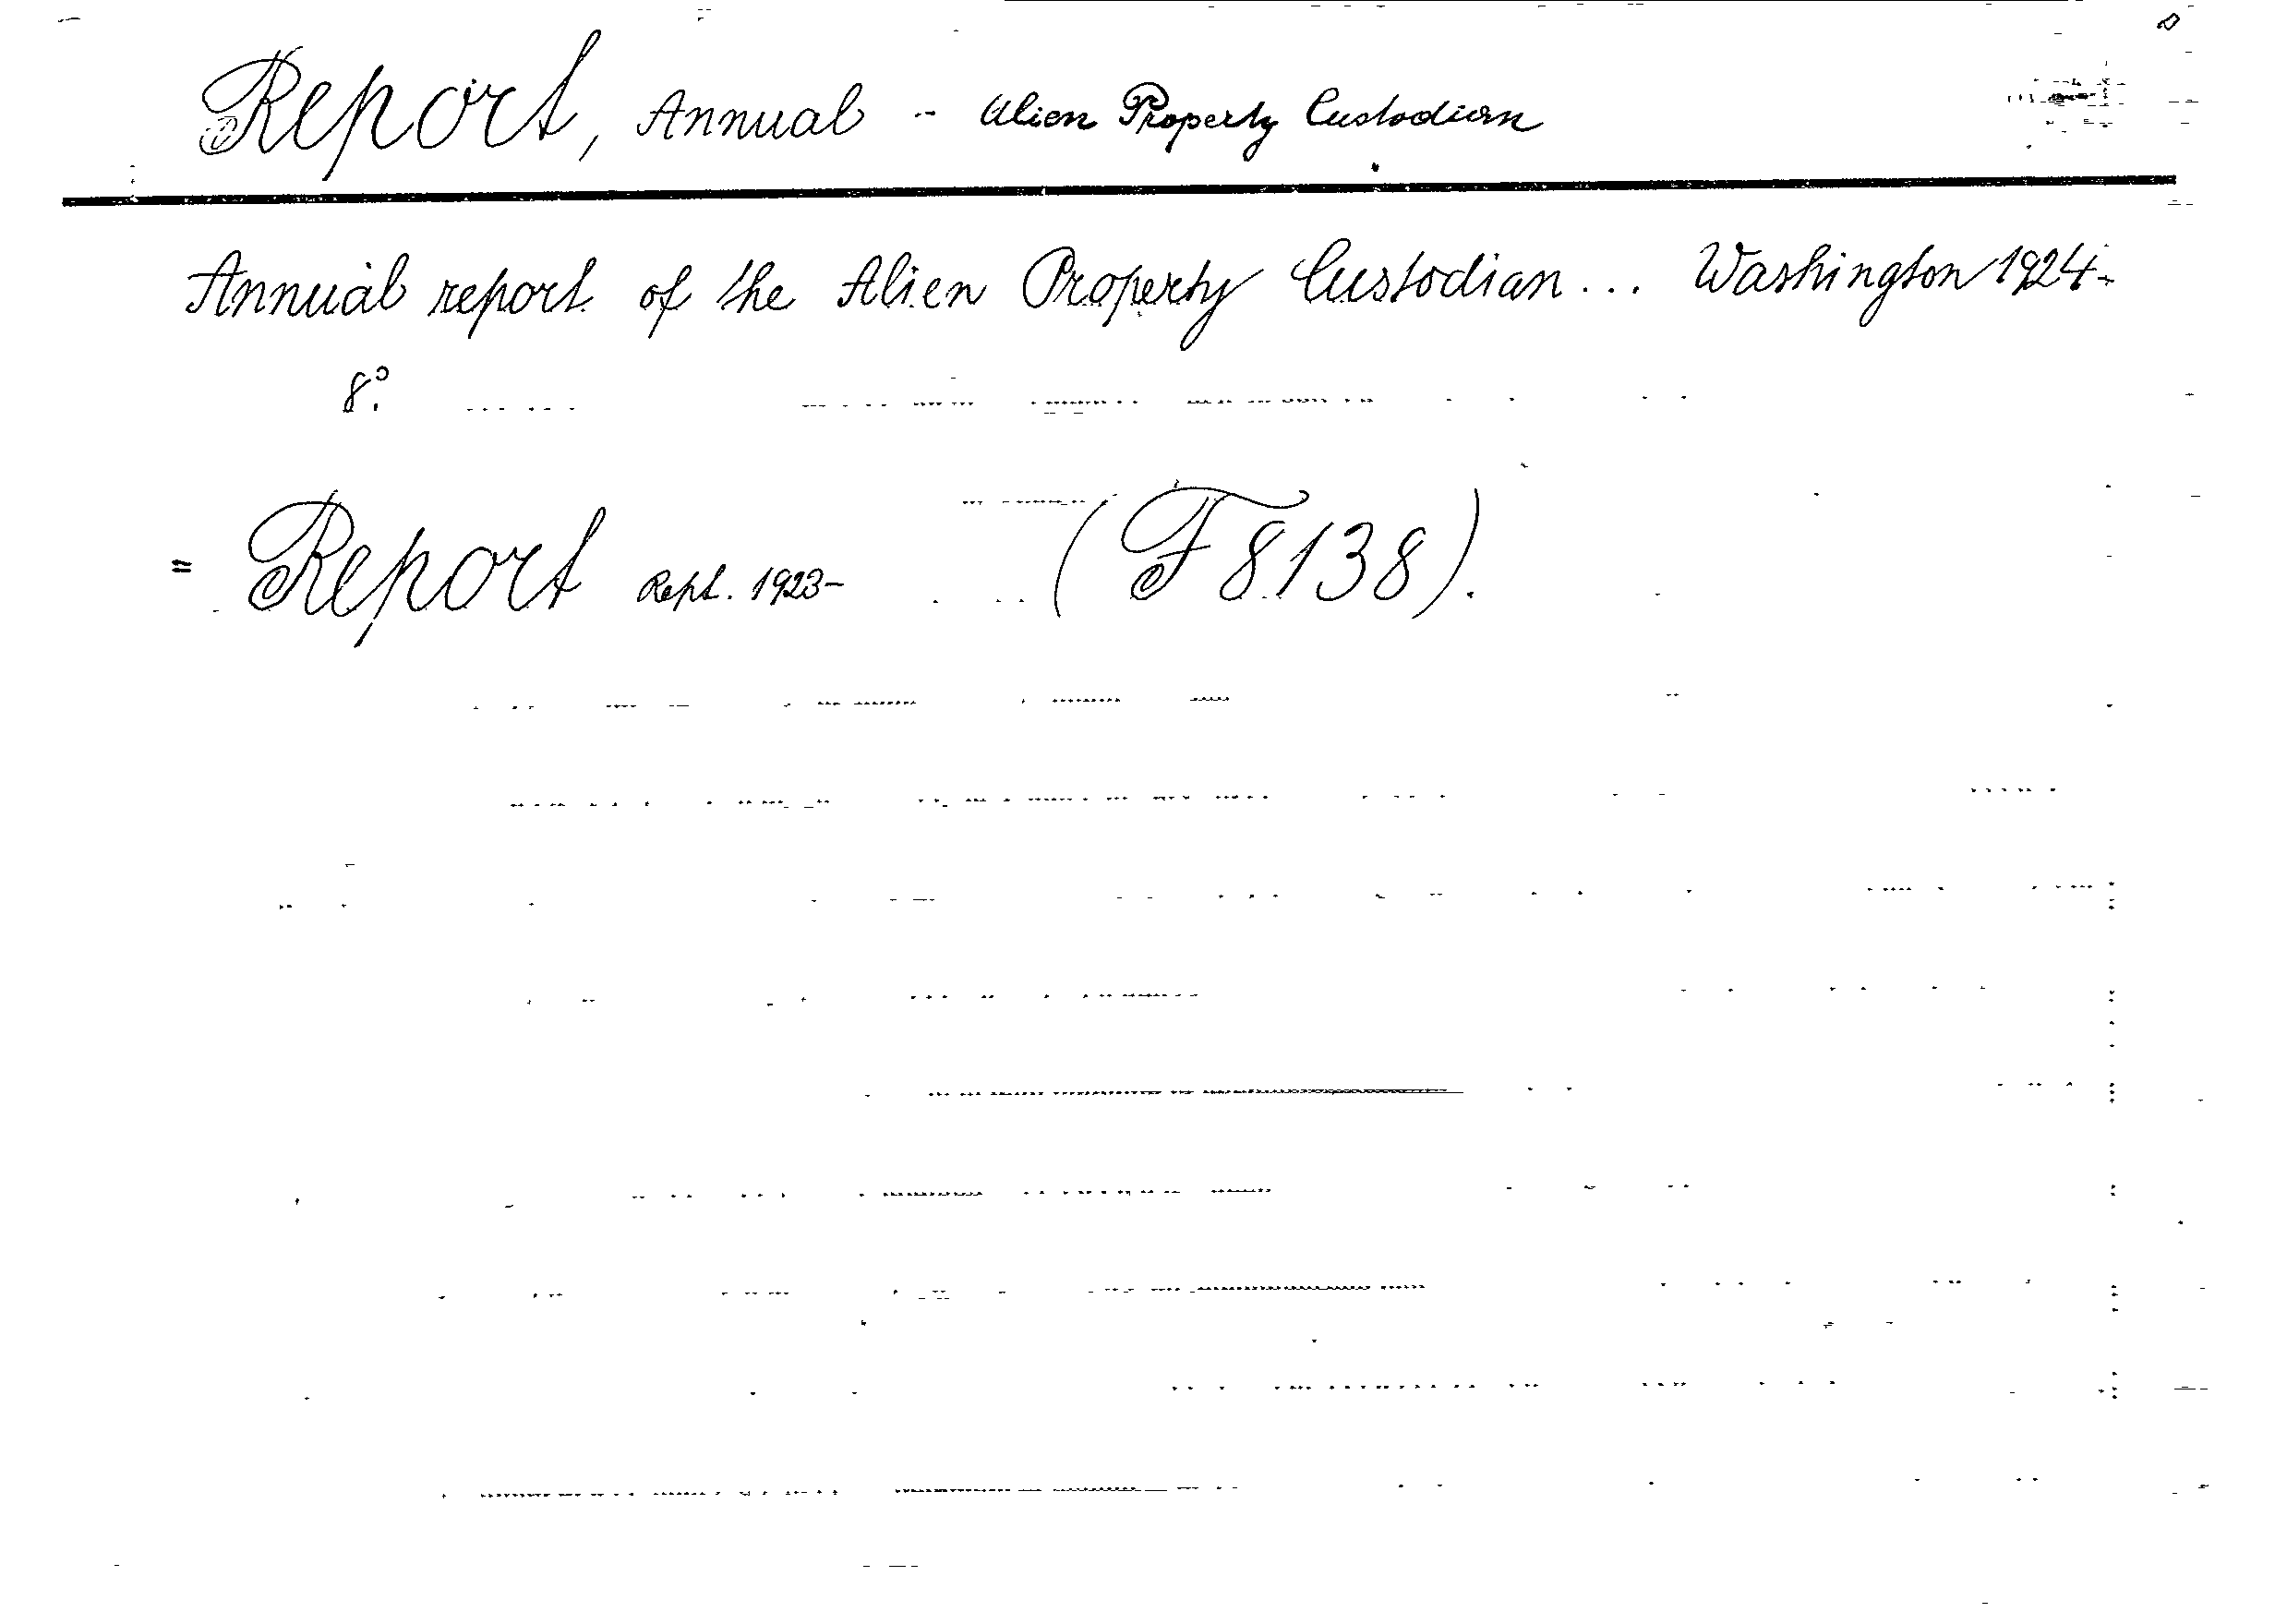 Report, Annual - Alien Property Custodian
Annual report of the Alien Property Custodian... Washington 1924-
8°.
= Report Rept. 1923- (F 8138).